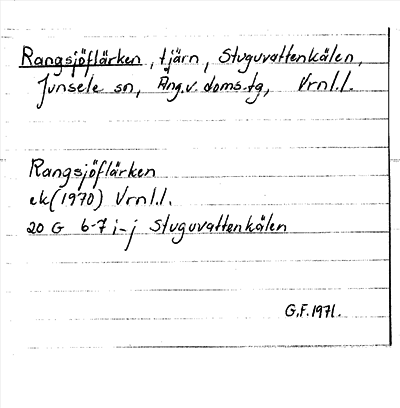 Rangsjöflärken, tjärn, Stuguvattenkälen,
Junsele sn, Ång.v. doms.tg, Vrnl.l.
Rangsjöflärken
ek(1970) Vrnl.l.
20 G 6-7 i-j Stuguvattenkälen
G.F. 1971.